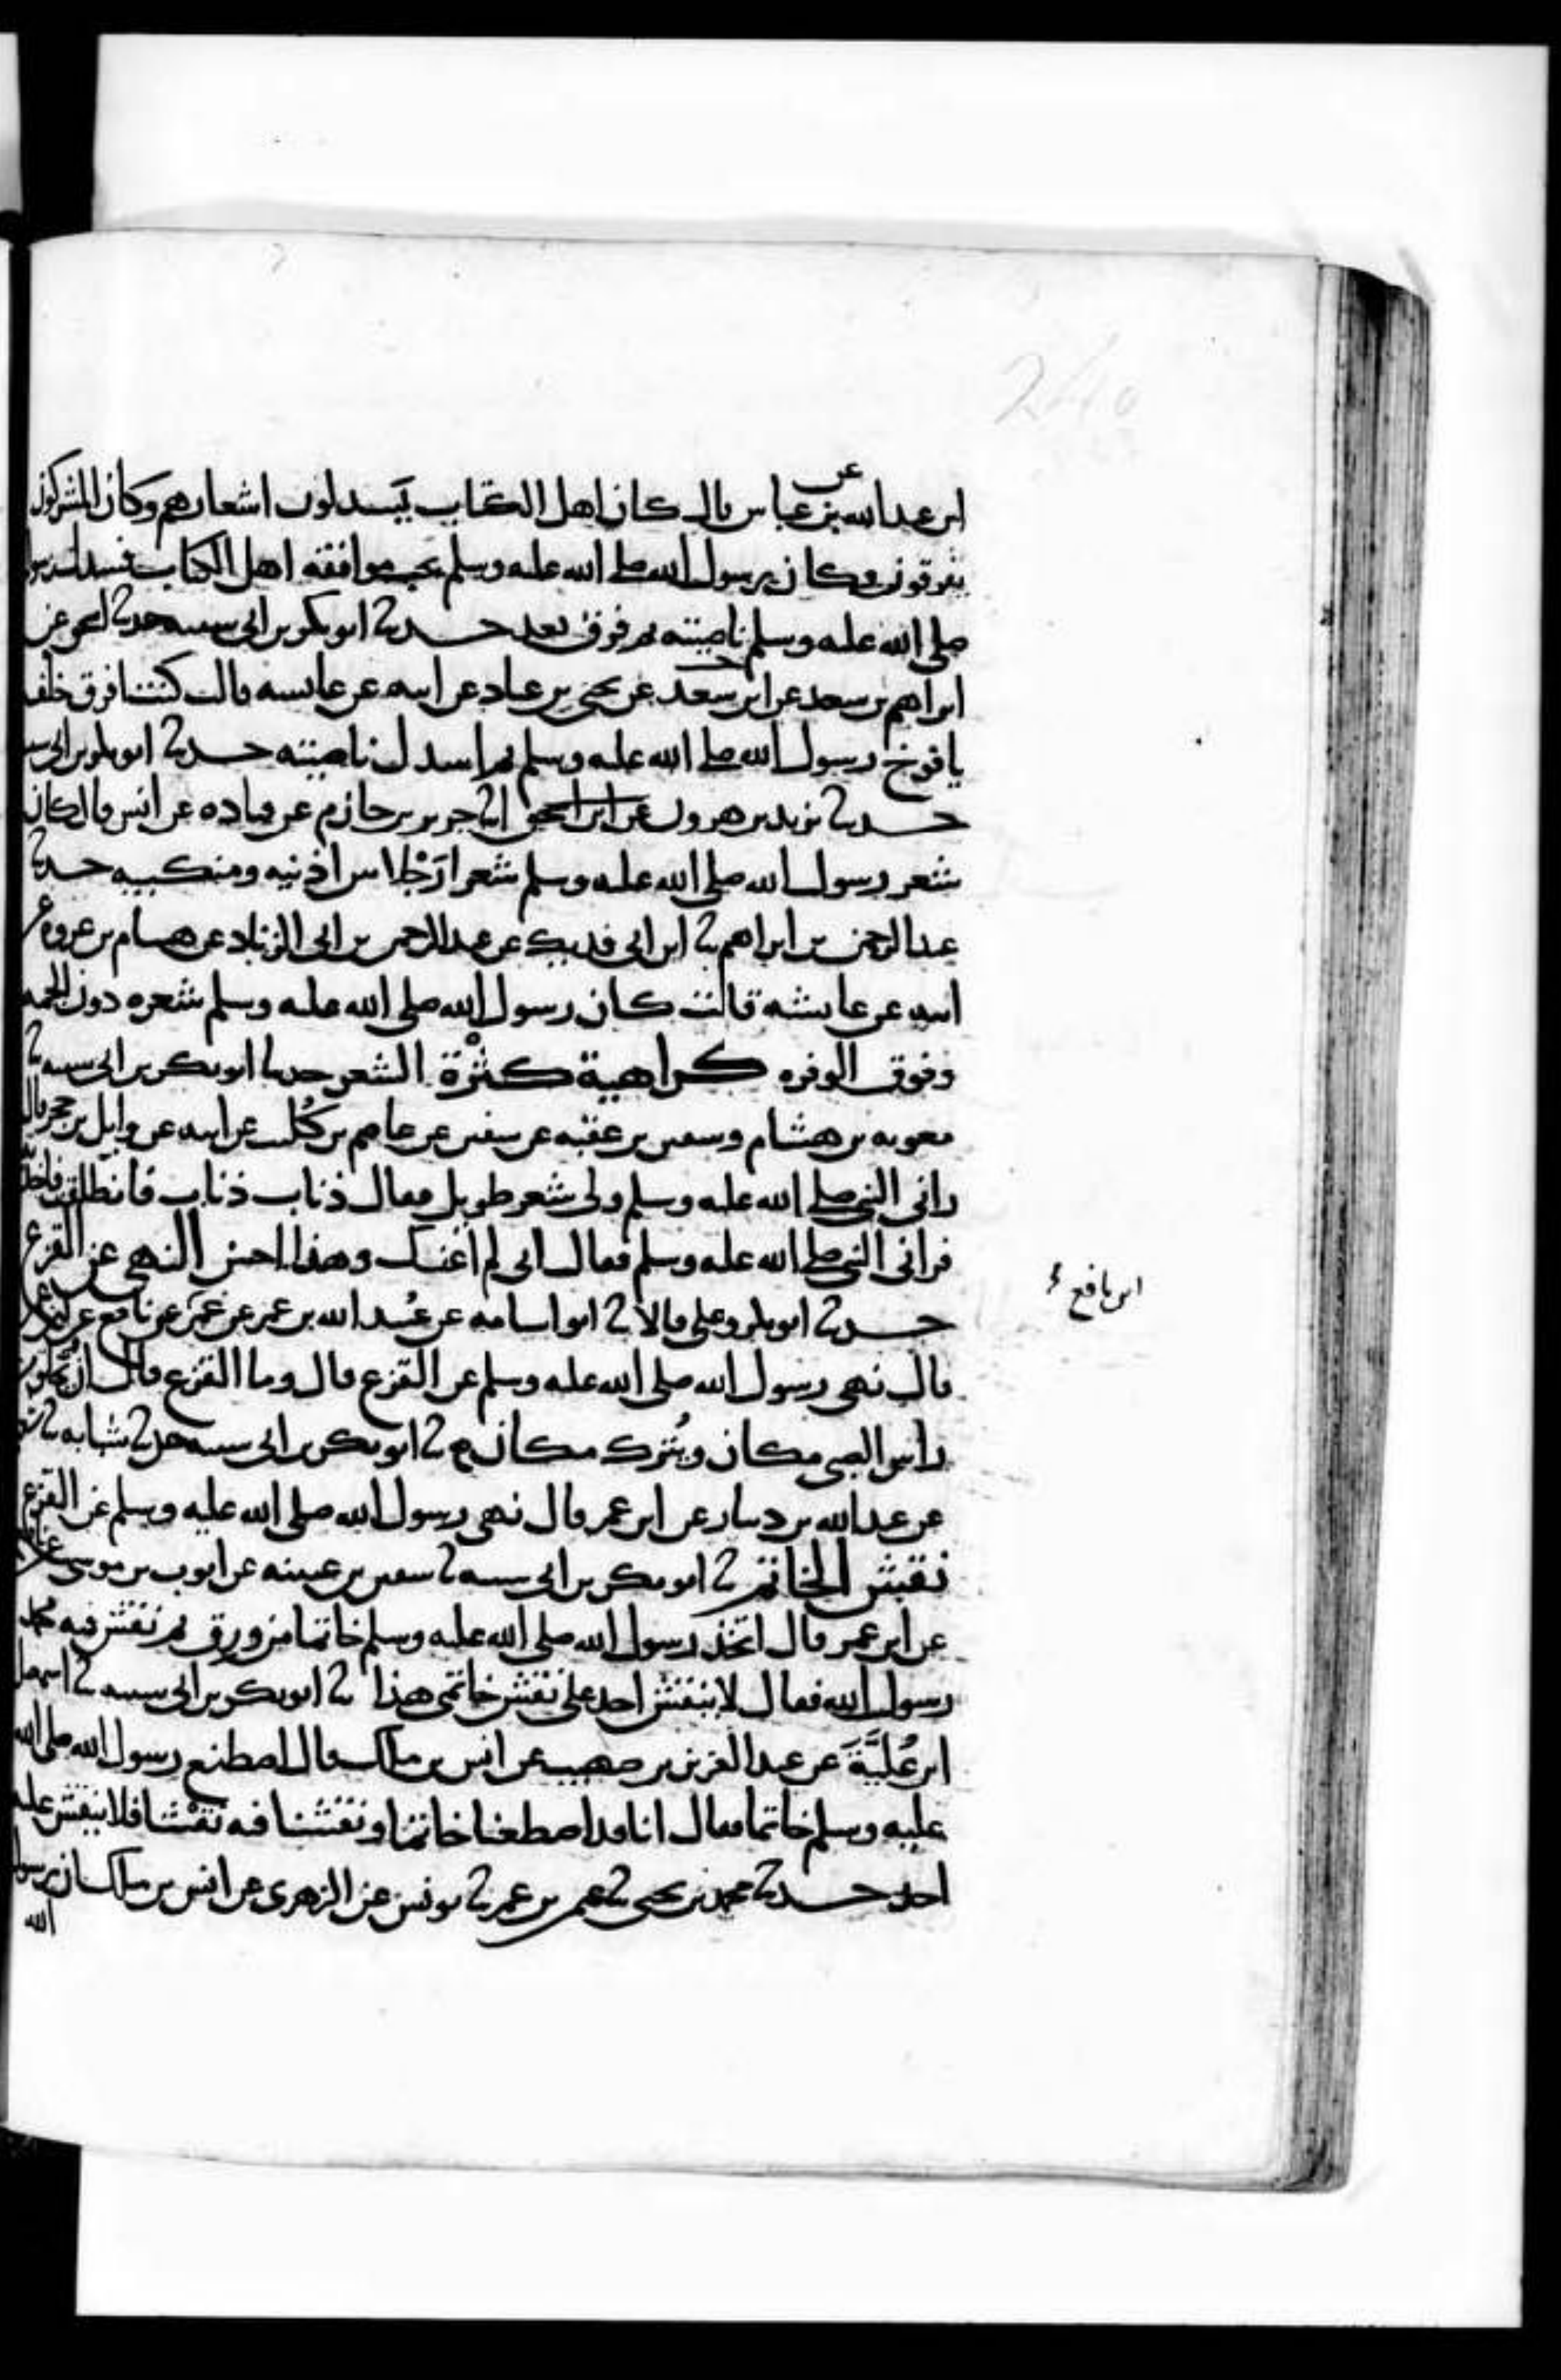 ابن عبد الله بن عباس قال كان اهل الكتاب يَسدلون اشعارهم وكان المشركون
عن
يفرقون وكان رسول الله صلى الله عليه وسلم يحب موافقة اهل الكتاب فسدل رسول
صلى الله عليه وسلم ناصيته ثم فرق بعد حدثنا ابو بكر بن ابي شيبه حدثنا اسحق عن
ابراهيم بن سعد عن ابن سعد عن يحيى بن عباد عن ابيه عن عائشه قالت كنت افرق خلف
يافوخ رسول الله صلى الله عليه وسلم ثم اسدل ناصيته حدثنا ابو بكر بن ابي
حدثنا يزيد بن هرون عن ابن اسحق انا جرير بن حازم عن قتاده عن انس قال كان
شعر رسول الله صلى الله عليه وسلم شعرا رَجْلا بين اذنيه ومنكبيه حدثنا
عبد الرحمن بن ابراهيم نا ابن ابي فديك عن عبد الرحمن بن ابي الزناد عن هشام بن عروه عن
ابيه عن عايشه قالت كان رسول الله صلى الله عليه وسلم شعره دون الجمه
وفوق الوفره كراهية كثْرة الشعر حدثنا ابو بكر بن ابي شيبه نا
معويه بن هشام وسفين بن عقبه عن سفين عن عاصم بن كُليب عن ابيه عن وايل بن حجر قال
راني النبي صلى الله عليه وسلم ولي شعر طويل فقال ذناب ذناب فانطلقت فاخذته
فراني النبي صلى الله عليه وسلم فقال اني لم اعنك وهذا احسن النهي عن القزع
حدثنا ابو بكر وعلي قالا نا ابو اسامه عن عُبيد الله بن عمر عن عمَر عن نافع عن ابن عمر
ابن نافع
قال نهى رسول الله صلى الله عليه وسلم عن القزع قال وما القزع قال ان يحلق من
راس الصبي مكان ويُترك مكان نا ابو بكر بن ابي شيبه حدثنا شبابه نا
عن عبد الله بن دينار عن ابن عمر قال نهى رسول الله صلى الله عليه وسلم عن القزع
نقش الخاتم نا ابو بكر بن ابي شيبه نا سفين بن عيينه عن ايوب بن موسى عن
عن ابن عمر قال اتخذ رسول الله صلى الله عليه وسلم خاتما من ورق ثم نقش فيه محمد
رسول الله فقال لا ينقش احد على نقش خاتمي هذا نا ابو بكر بن ابي شيبه نا اسمعيل
ابن عُليَّةَ عن عبد العزيز بن صهيب عن انس بن ملك قال اصطنع رسول الله صلى الله
عليه وسلم خاتما فقال انا قد اصطنعنا خاتما ونقشنا فيه نقْشا فلا ينقش عليه
احد حدثنا محمد بن يحيى نا عثمن بن عمر نا يونس عن الزهري عن انس بن ملك ان رسول
الله